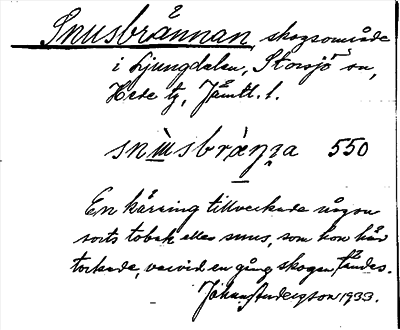 Snusbrånnan, skogsområde
i Ljungdalen, Storsjö sn,
Hede tg, Jämtl. l.
snùsbràn̥a 550
En käring tillverkade någon
sorts tobak eller snus, som hon här
torkade, varvid en gång skogen tändes.
Johan Andersson 1933.